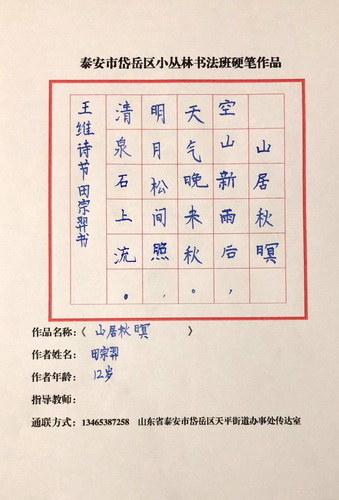 泰安市岱岳区小丛林书法班硬笔作品
山居秋暝
空山新雨后，
天气晚来秋。
明月松间照，
清泉石上流。
王维诗节田宗羿书
作品名称：《 山居秋暝 》
作者姓名： 田宗羿
作者年龄： 12岁
指导教师：
通联方式：13465387258 山东省泰安市岱岳区天平街道办事处传达室